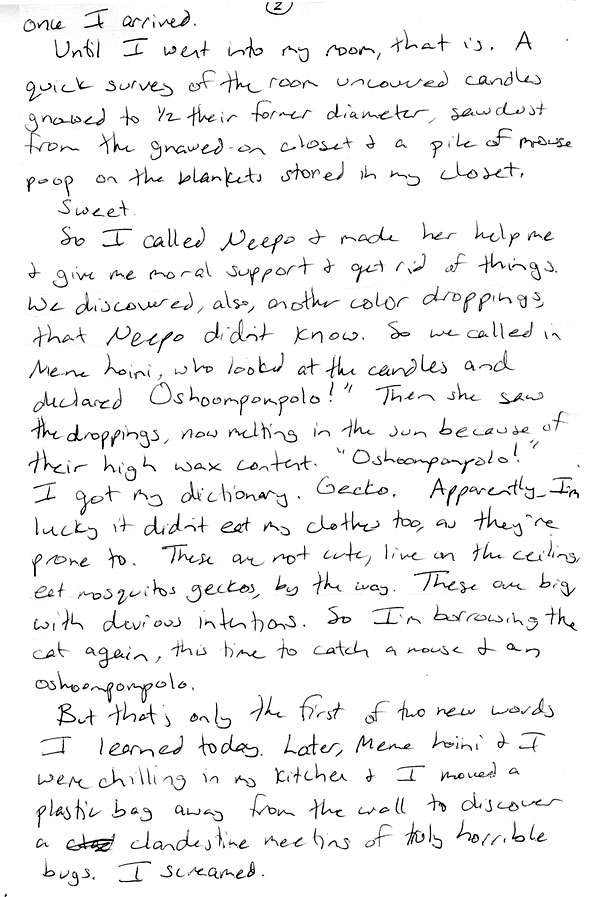 2
once I arrived.
Until I went into my room, that is. A
quick survey of the room uncovered candles
gnawed to 1/2 their former diameter, sawdust
from the gnawed-on closet & a pile of mouse
poop on the blankets stored in my closet.
Sweet.
So I called Neepo & made her help me
& give me moral support & get rid of things.
We discovered, also, another color droppings,
that Neepo didn't know. So we called in
Meme hoini, who looked at the candles and
declared Oshoompompolo!" Then she saw
the droppings, now melting in the sun because of
their high wax content. "Oshoompompolo!"
I got my dictionary. Gecko. Apparently I'm
lucky it didn't eat my clothes too, as they're
prone to. These are not cute, live on the ceiling,
eat mosquitos geckos, by the way. These are big
with devious intentions. So I'm borrowing the
cat again, this time to catch a mouse & an
oshoompompolo.
But that's only the first of two new words
I learned today. Later, Meme hoini & I
were chilling in my kitchen & I moved a
plastic bag away from the wall to discover
a clandestine meeting of truly horrible
bugs. I screamed.